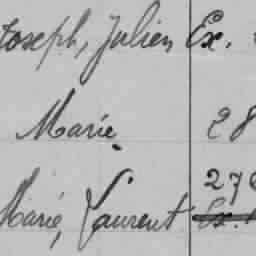 Joseph, Julien Ex.
Marie 28
276
Marie, Laurent Ex.